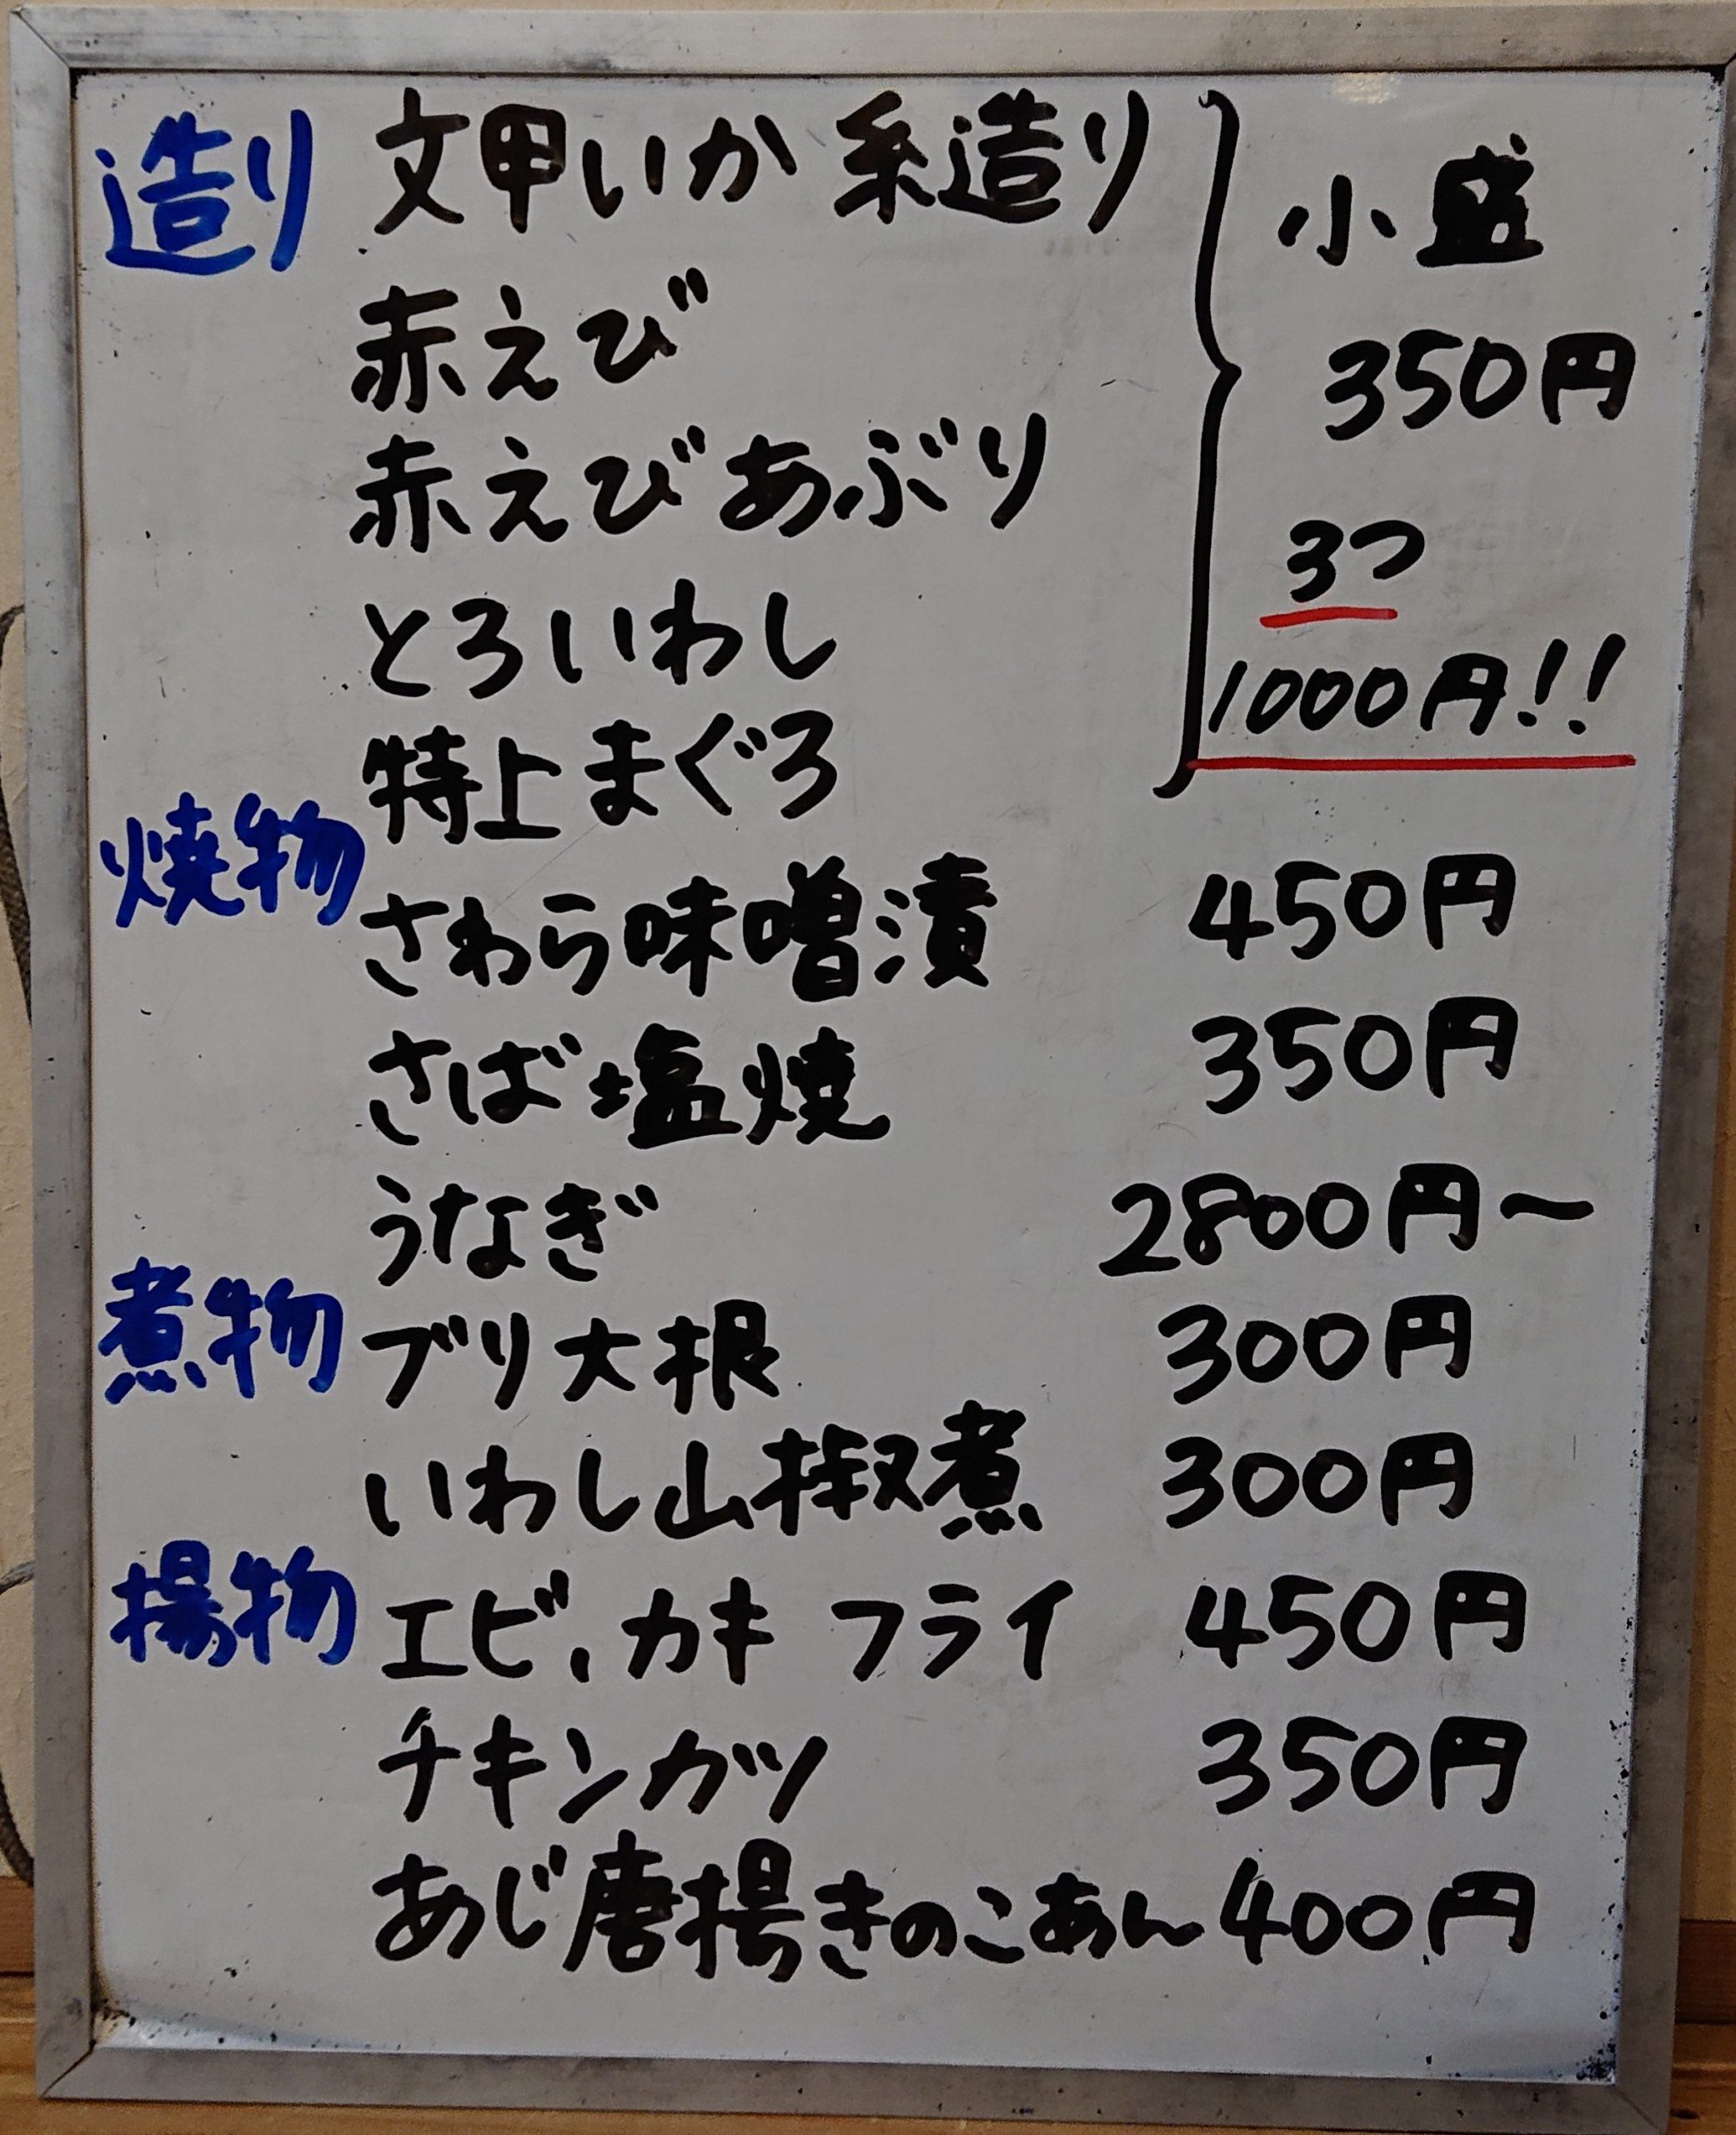 造り 文甲いか 糸造り
赤えび
赤えび あぶり
とろいわし
特上まぐろ
小盛
350円
3つ
1000円!!
焼物 さわら味噌漬 450円
さば塩焼 350円
うなぎ 2800円〜
煮物 ブリ大根 300円
いわし山椒煮 300円
揚物 エビ、カキ フライ 450円
チキンカツ 350円
あじ唐揚きのこあん 400円